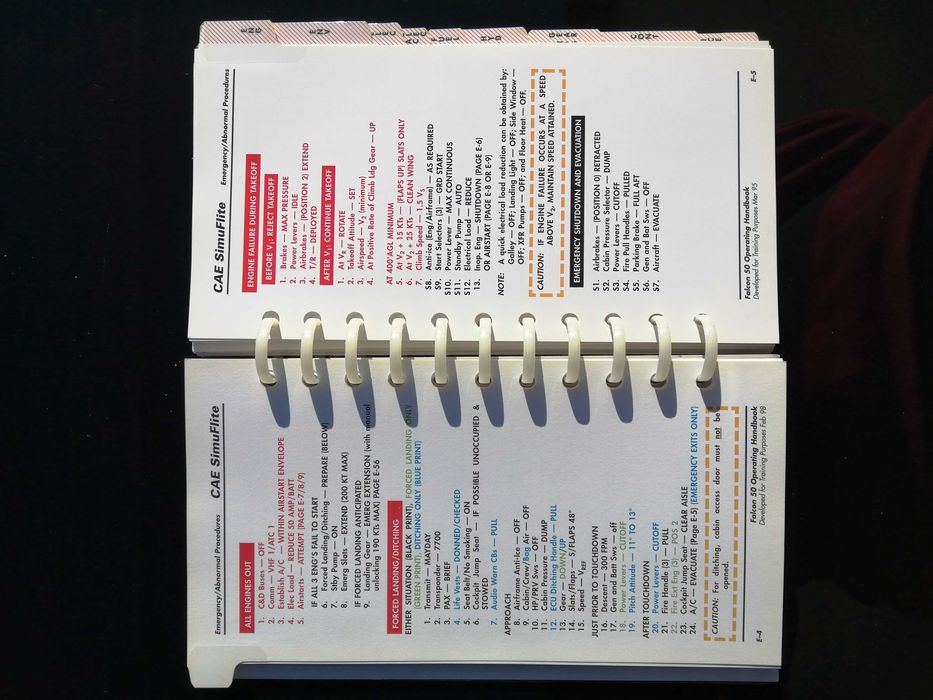 Emergency/Abnormal Procedures CAE SimuFlite
ALL ENGINES OUT
1. C&D Buses — OFF
2. Comm VHF 1/ATC 1
3. Establish A/C — WITHIN AIRSTART ENVELOPE
4. Elec Load — REDUCE 50 AMP/BATT
5. Airstarts — ATTEMPT (PAGE E-7/8/9)
IF ALL 3 ENG'S FAIL TO START
6. Forced Landing/Ditching — PREPARE (BELOW)
7. Stby Pump — ON
8. Emerg Slats — EXTEND (200 KT MAX)
IF FORCED LANDING ANTICIPATED
9. Landing Gear — EMERG EXTENSION (with manual
unlocking 190 KTs MAX) PAGE E-56
FORCED LANDING/DITCHING
EITHER SITUATION (BLACK PRINT), FORCED LANDING ONLY
(GREEN PRINT), DITCHING ONLY (BLUE PRINT)
1. Transmit — MAYDAY
2. Transponder — 7700
3. PAX — BRIEF
4. Life Vests — DONNED/CHECKED
5. Seat Belt/No Smoking — ON
6. Cockpit Jump Seat — IF POSSIBLE UNOCCUPIED &
STOWED
7. Audio Warn CBs — PULL
APPROACH
8. Airframe Anti-Ice — OFF
9. Cabin/Crew/Bag Air — OFF
10. HP/PRV Sws — OFF
11. Cabin Pressure — DUMP
12. ECU Ditching Handle — PULL
13. Gear — DOWN/UP
14. Slats/Flaps — S/FLAPS 48°
15. Speed — VREF
JUST PRIOR TO TOUCHDOWN
16. Descent — 300 FPM
17. Gen and Batt Sws — off
18. Power Levers — CUTOFF
19. Pitch Attitude — 11° TO 13°
AFTER TOUCHDOWN
20. Power Levers — CUTOFF
21. Fire Handle (3) — PULL
22. Fire Ext Eng (3) — POS 2
23. Cockpit Jump Seat — CLEAR AISLE
24. A/C — EVACUATE (Page E-5) (EMERGENCY EXITS ONLY)
CAUTION: For ditching, cabin access door must not be
opened.
Falcon 50 Operating Handbook
E-4 Developed for Training Purposes Feb 98
CAE SimuFlite Emergency/Abnormal Procedures
ENGINE FAILURE DURING TAKEOFF
BEFORE V1: REJECT TAKEOFF
1. Brakes — MAX PRESSURE
2. Power Levers — IDLE
3. Airbrakes — (POSITION 2) EXTEND
4. T/R — DEPLOYED
AFTER V1: CONTINUE TAKEOFF
1. At VR — ROTATE
2. Takeoff Attitude — SET
3. Airspeed — V2 (minimum)
4. At Positive Rate of Climb Ldg Gear — UP
AT 400'AGL MINIMUM
5. At V2 + 15 KTs — (FLAPS UP) SLATS ONLY
6. At V2 + 25 KTs — CLEAN WING
7. Climb Speed — 1.5 VS
S8. Anti-ice (Eng/Airframe) — AS REQUIRED
S9. Start Selectors (3) — GRD START
S10. Power Lever — MAX CONTINUOUS
S11. Standby Pump — AUTO
S12. Electrical Load — REDUCE
13. Inop. Eng — SHUTDOWN (PAGE E-6)
OR AIRSTART (PAGE E-8 OR E-9)
NOTE: A quick electrical load reduction can be obtained by:
Galley — OFF; Landing Light — OFF; Side Window —
OFF; XFR Pumps — OFF; and Floor Heat — OFF.
CAUTION: IF ENGINE FAILURE OCCURS AT A SPEED
ABOVE V2, MAINTAIN SPEED ATTAINED.
EMERGENCY SHUTDOWN AND EVACUATION
S1. Airbrakes — (POSITION 0) RETRACTED
S2. Cabin Pressure Selector — DUMP
S3. Power Levers — CUTOFF
S4. Fire Pull Handles — PULLED
S5. Parking Brake — FULL AFT
S6. Gen and Bat Sws — OFF
S7. Aircraft — EVACUATE
Falcon 50 Operating Handbook
Developed for Training Purposes Mar 95 E-5